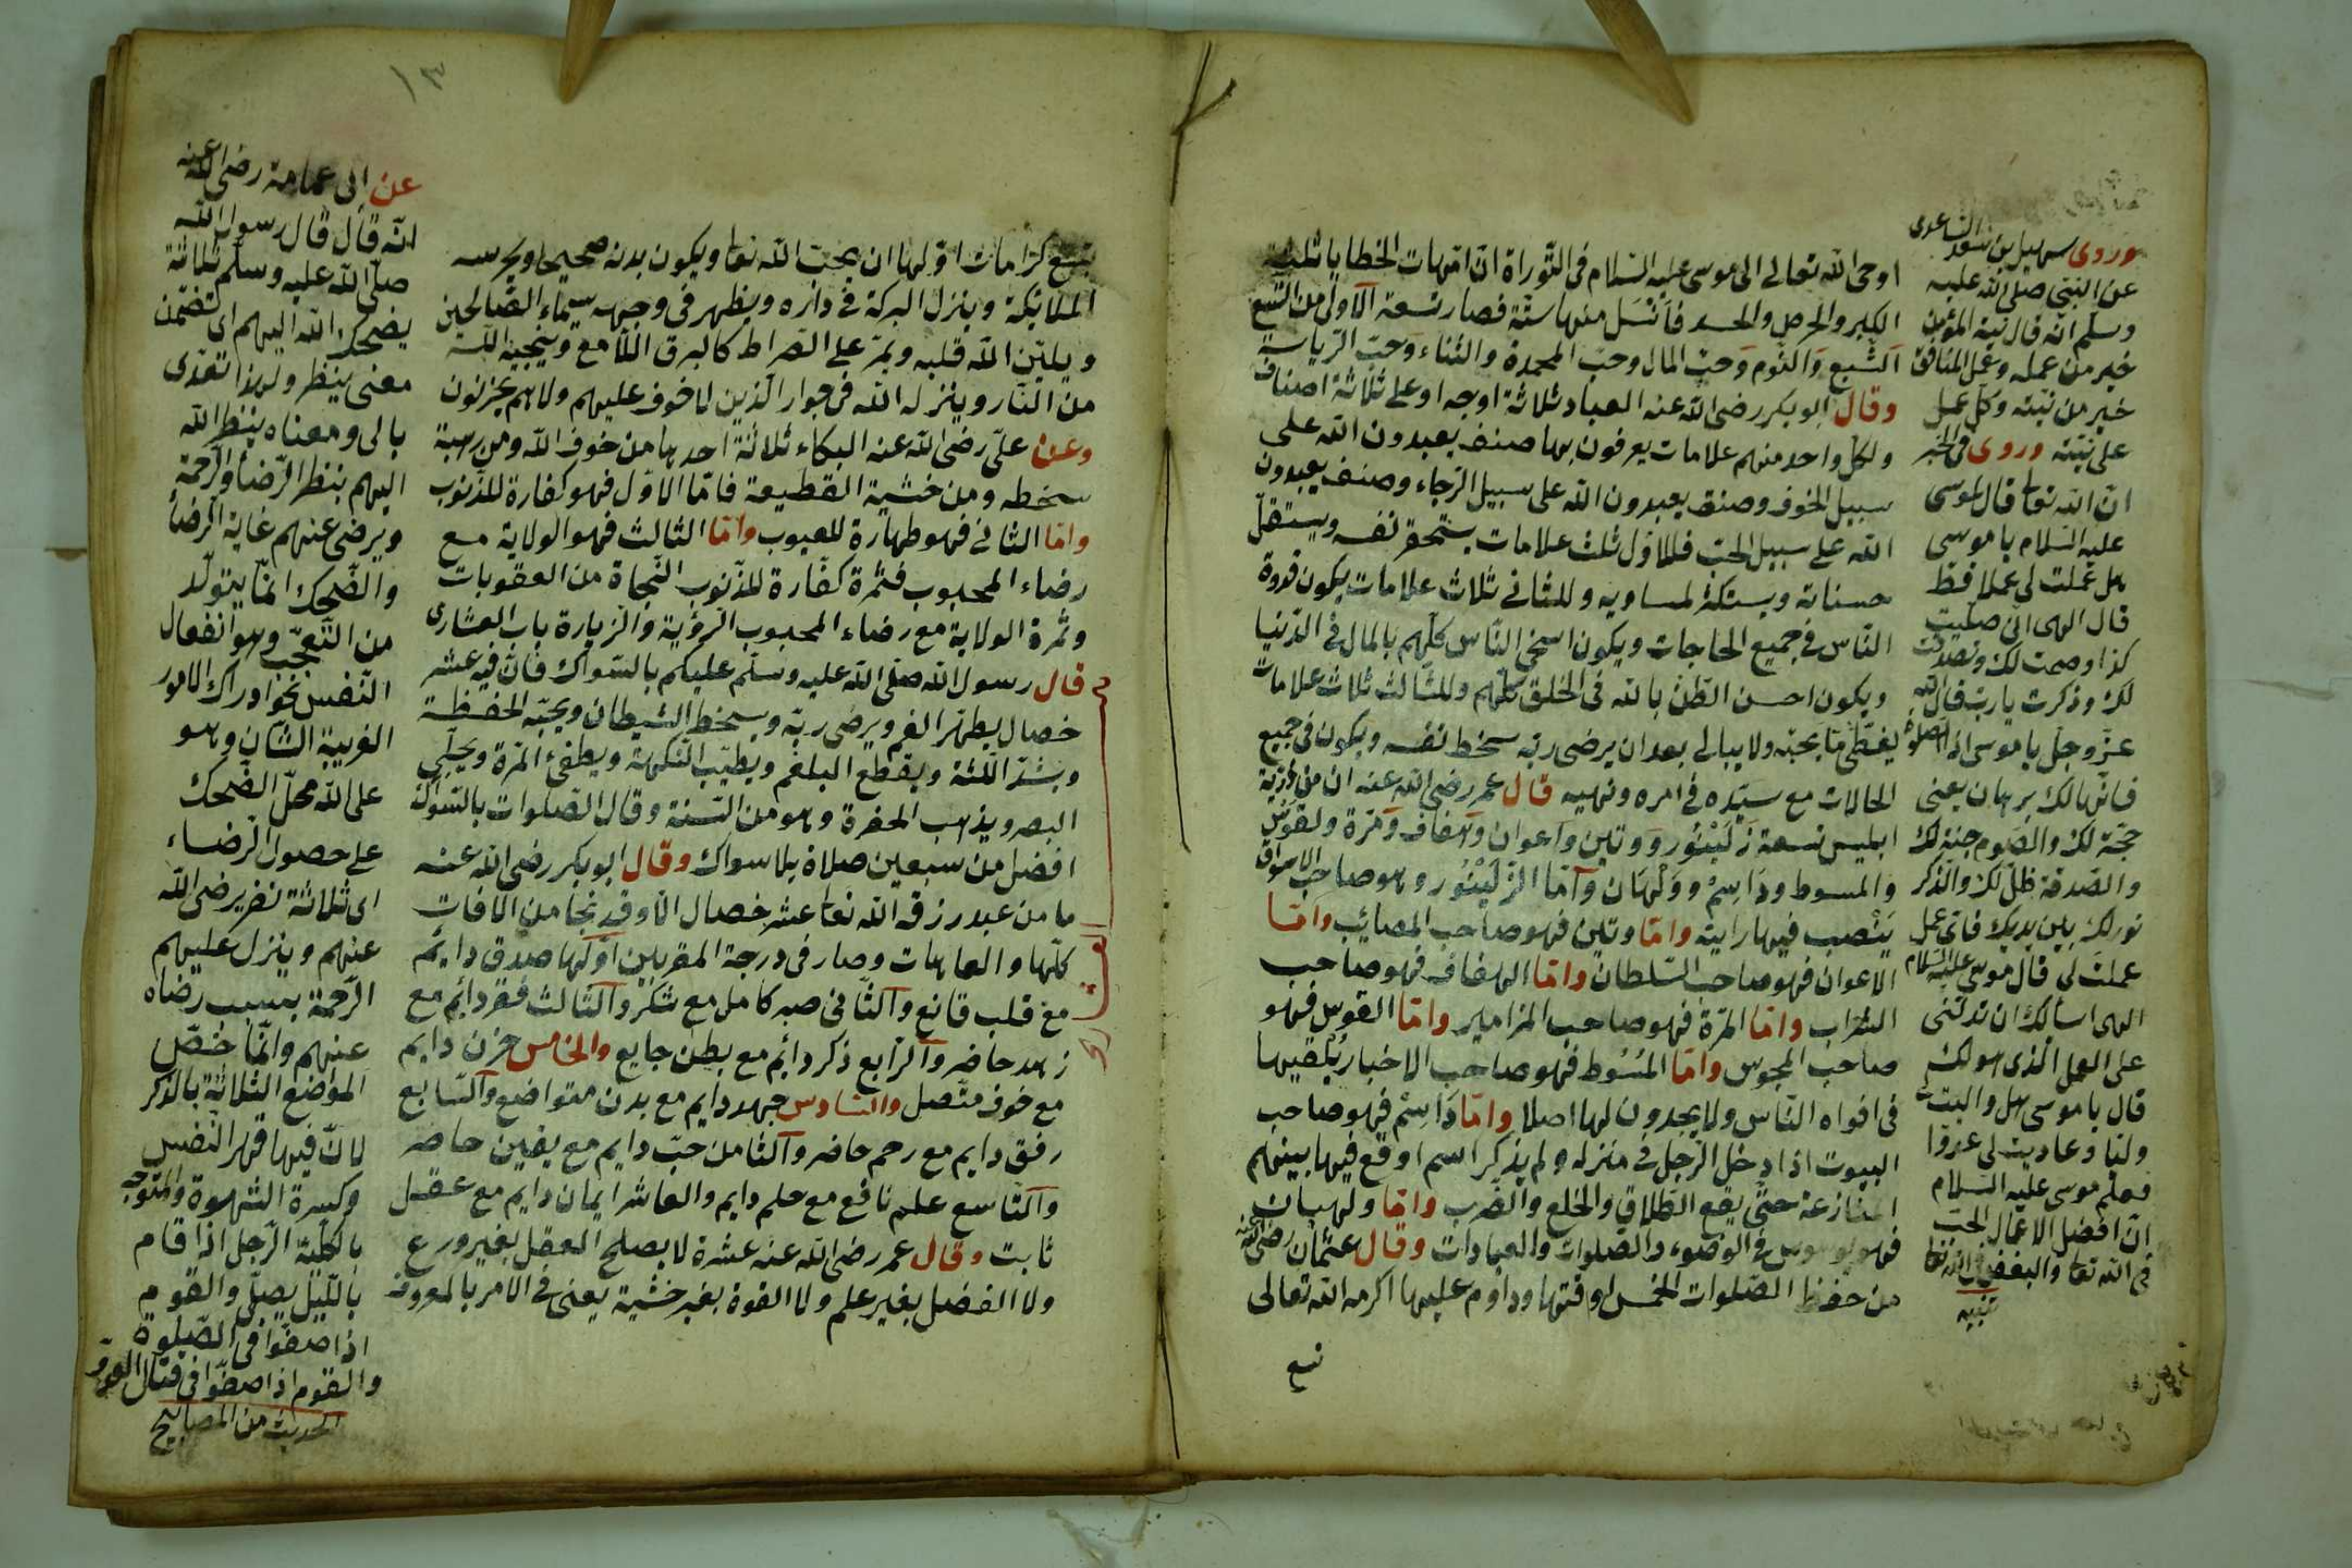 اوحى الله تعالى الى موسى عليه السّلام فى التّوراة انّ امّهات الخطايا ثلثة
الكبر والحرص والحسد فانسل منها ستّة فصار تسعة الاولى من التسع
الشّبع والنّوم وحبّ المال وحبّ المحمدة والثناء وحبّ الرّياسة
وقال ابو بكر رضى الله عنه العباد ثلاثة اوجه او على ثلاثة اصناف
ولكل واحد منهم علامات يعرفون بها صنف يعبدون الله على
سبيل الخوف وصنف يعبدون الله على سبيل الرّجاء وصنف يعبدون
الله على سبيل الحبّ فللاوّل ثلث علامات يستحقر نفسه ويستقلّ
حسناته ويستكثر لمساويه وللثانى ثلاث علامات يكون قدوة
النّاس فى جميع الحاجات ويكون اسخى النّاس كلّهم بالمال فى الدّنيا
ويكون احسن الظّن بالله فى الخلق كلّهم وللثّالث ثلاث علامات
يغطى ما يحبّه ولا يبالى بعد ان يرضى ربّه سخط نفسه ويكون فى جميع
الحالات مع سيّده فى امره ونهيه قال عمر رضى الله عنه ان من ذريّة
ابليس تسعة زلينور ووتين واعوان وهفاف ومرّة ولقوس
والمسوط وداسم وولهان وامّا الزلينور وهو صاحب الاسواق
ينصب فيها رايته وامّا وتين فهو صاحب المصائب وامّا
الاعوان فهو صاحب السّلطان وامّا الهفاف فهو صاحب
الشراب وامّا المرّة فهو صاحب المزامير وامّا القوس فهو
صاحب المجوس وامّا المسوط فهو صاحب الاخبار يلقيها
فى افواه النّاس ولا يجدون لها اصلا وامّا داسم فهو صاحب
البيوت اذا دخل الرّجل فى منزله ولم يذكر اسم اوقع فيها بينهم
المنازعة حتّى يقع الطّلاق والخلع والضّرب وامّا ولهان
فهو يوسوس فى الوضوء والصّلوات والعبادات وقال عثمان رضى الله عنه
من حفظ الصّلوات الخمس لوقتها وداوم عليها اكرمه الله تعالى
تسع
وروى سهيل بن سعد الساعدى
عن النّبى صلى الله عليه
وسلّم انّه قال نيّة المؤمن
خير من عمله وعمل المنافق
خير من نيّته وكل عمل
على نيّته وروى فى الخبر
انّ الله تعا قال لموسى
عليه السّلام يا موسى
هل عملت لى عملا قطّ
قال الهى انى صلّيت
كذا وصمت لك وتصدّقت
لك وذكرت يا رب قال الله
عزّ وجلّ يا موسى ان الصلوة
فانّها لك برهان يعنى
حجّة لك والصّوم جنّة لك
والصّدقة ظلّ لك والذّكر
نور لك بين يديك فاىّ عمل
عملت لى قال موسى عليه السلام
الهى اسألك ان تدلّنى
على العمل الّذى هو لك
قال يا موسى هل واليت
وليّا وعاديت لى عدوّا
فعلم موسى عليه السّلام
انّ افضل الاعمال الحبّ
فى الله تعا والبغض فى الله تعا
تنبيه
١٣
تسع كرامات اوّلها ان يحبّ الله تعا ويكون بدنه صحيحا ويحرسه
الملائكة وينزل البركة فى داره ويظهر فى وجهه سيماء الصّالحين
ويليّن الله قلبه ويمرّ على الصّراط كالبرق اللّامع وينجيه الله
من النّار وينزله الله فى جوار الّذين لا خوف عليهم ولا هم يحزنون
وعن علىّ رضى الله عنه البكاء ثلاثة احدها من خوف الله ومن رهبة
سخطه ومن خشية القطيعة فامّا الاوّل فهو كفارة للذّنوب
وامّا الثانى فهو طهارة للعيوب وامّا الثالث فهو الولاية مع
رضاء المحبوب فثمرة كفّارة للذّنوب النّجاة من العقوبات
وثمرة الولاية مع رضاء المحبوب الرّؤية والزيارة باب العشارى
قال رسول الله صلّى الله عليه وسلّم عليكم بالسّواك فانّ فيه عشر
خصال يطهّر الفم ويرضى ربّه ويسخط الشيطان ويحبّه الحفظة
ويشدّ اللّثة ويقطع البلغم ويطيّب النّكهة ويطفئ المرّة ويجلّى
البصر ويذهب الحفرة وهو من السّنة وقال الصّلوات بالسّواك
افضل من سبعين صلاة بلا سواك وقال ابو بكر رضى الله عنه
ما من عبد رزقه الله تعا عشر خصال الّا وقد نجا من الافات
كلّها والعاهات وصار فى درجة المقربين اوّلها صدق دايم
مع قلب قانع والثّانى صبر كامل مع شكر والثّالث فقر دايم مع
زهد حاضر والرّابع ذكر دايم مع بطن جايع والخامس حزن دايم
مع خوف متّصل والسّادس جهد دايم مع بدن متواضع والسّابع
رفق دايم مع رحم حاضر والثامن حبّ دايم مع يقين حاضر
والتّاسع علم نافع مع حلم دايم والعاشر ايمان دايم مع عقل
ثابت وقال عمر رضى الله عنه عشرة لا يصلح العقل بغير ورع
ولا الفضل بغير علم ولا القوة بغير خشية يعنى فى الامر بالمعروف
عن ابى عمامة رضى الله عنه
انّه قال قال رسول الله
صلّى الله عليه وسلّم ثلاثة
يضحك الله اليهم اى تضمّن
معنى ينظر ولهذا تعدّى
بالى ومعناه ينظر الله
اليهم بنظر الرّضا والرّحمة
ويرضى عنهم غاية الرضا
والضّحك انّما يتولّد
من التّعجّب وهو انفعال
النّفس نحو ادراك الامور
الغريبة الشان وهو
على الله محلّ الضّحك
على حصول الرضاء
اى ثلاثة نفر يرضى الله
عنهم وينزل عليهم
الرّحمة بسبب رضاه
عنهم وانّما خصّ
المؤضع الثّلاثة بالذّكر
لانّ فيها قهر النّفس
وكسرة الشهوة والتّوجه
بالكليّة الرّجل اذا قام
باللّيل يصلّى والقوم
اذا صفّوا فى الصّلوة
والقوم اذا صفّوا فى قتال العدوّ
الحديث من المصابيح